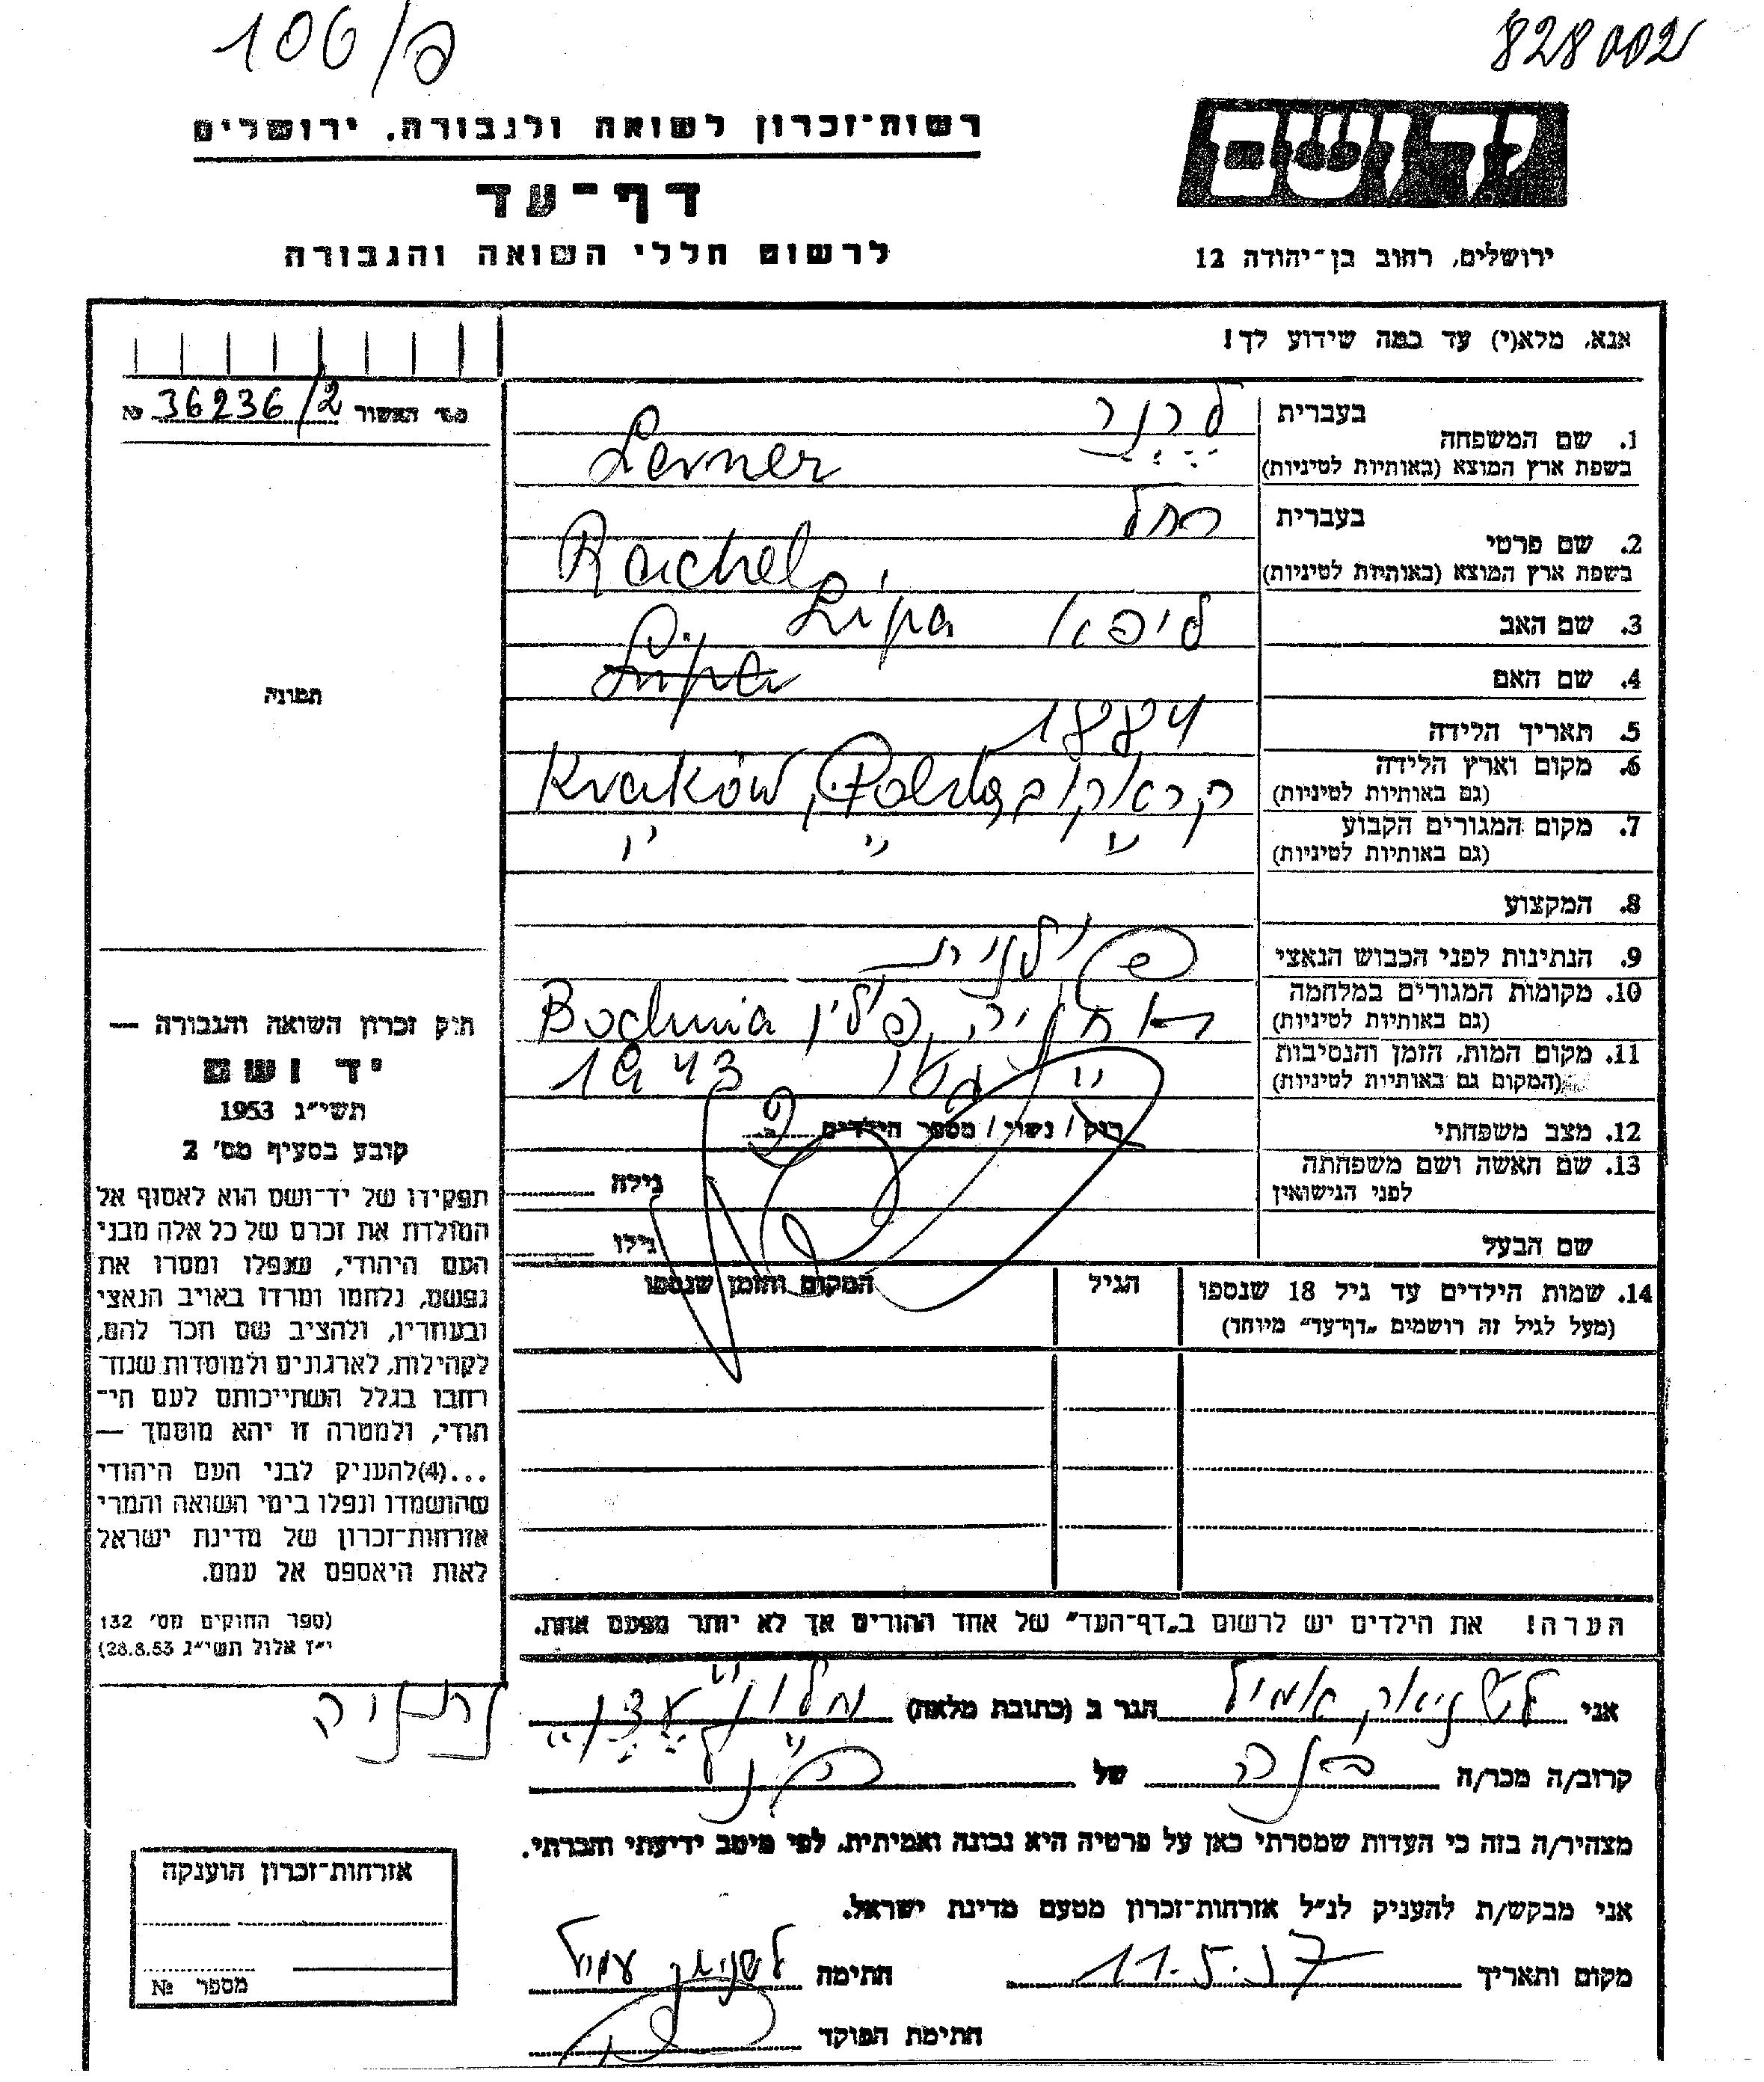 106/פ
828002
רשות־זכרון לשואה ולגבורה, ירושלים
דף־עד
לרשום חללי השואה והגבורה
יד ושם
ירושלים, רחוב בן־יהודה 12
אנא, מלא(י) עד כמה שידוע לך!
מס' האשור 36236/2 №
1. שם המשפחה
בעברית לרנר
בשפת ארץ המוצא (באותיות לטיניות) Lerner
2. שם פרטי
בעברית רחל
בשפת ארץ המוצא (באותיות לטיניות) Rachel
3. שם האב ליפא Lipa
4. שם האם Lipa
5. תאריך הלידה 1884
6. מקום וארץ הלידה
(גם באותיות לטיניות) קראקוב Kraków, Polska
7. מקום המגורים הקבוע
(גם באותיות לטיניות) " " "
8. המקצוע
9. הנתינות לפני הכבוש הנאצי פולנית
10. מקומות המגורים במלחמה
(גם באותיות לטיניות) בוחניה, פולין Bochnia
11. מקום המות, הזמן והנסיבות
(המקום גם באותיות לטיניות) " גטו 1943
12. מצב משפחתי רוק / נשוי / מספר הילדים
13. שם האשה ושם משפחתה
לפני הנישואין גילה
שם הבעל גילו
14. שמות הילדים עד גיל 18 שנספו
(מעל לגיל זה רושמים „דף־עד" מיוחד)
הגיל
המקום והזמן שנספו
תמונה
חוק זכרון השואה והגבורה —
יד ושם
תשי״ג 1953
קובע בסעיף מס' 2
תפקידו של יד־ושם הוא לאסוף אל
המולדת את זכרם של כל אלה מבני
העם היהודי, שנפלו ומסרו את
נפשם, נלחמו ומרדו באויב הנאצי
ובעוזריו, ולהציב שם וזכר להם,
לקהילות, לארגונים ולמוסדות שנח־
רבו בגלל השתייכותם לעם הי־
הודי, ולמטרה זו יהא מוסמך —
...(4)להעניק לבני העם היהודי
שהושמדו ונפלו בימי השואה והמרי
אזרחות־זכרון של מדינת ישראל
לאות היאספם אל עמם.
(ספר החוקים מס' 132
י״ז אלול תשי״ג 28.8.53)
הערה! את הילדים יש לרשום ב„דף־העד" של אחד ההורים אך לא יותר מפעם אחת.
אני הגר ב (כתובת מלאה) מלון נתניה
קרוב/ה מכר/ה של הנ"ל
מצהיר/ה בזה כי העדות שמסרתי כאן על פרטיה היא נכונה ואמיתית, לפי מיטב ידיעתי והכרתי.
אני מבקש/ת להעניק לנ״ל אזרחות־זכרון מטעם מדינת ישראל.
מקום ותאריך 11.5.57 חתימה
חתימת הפוקד
אזרחות־זכרון הוענקה
מספר №